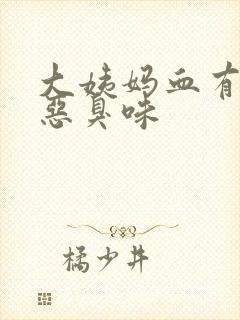 大姨妈血有
恶臭味
橘少井